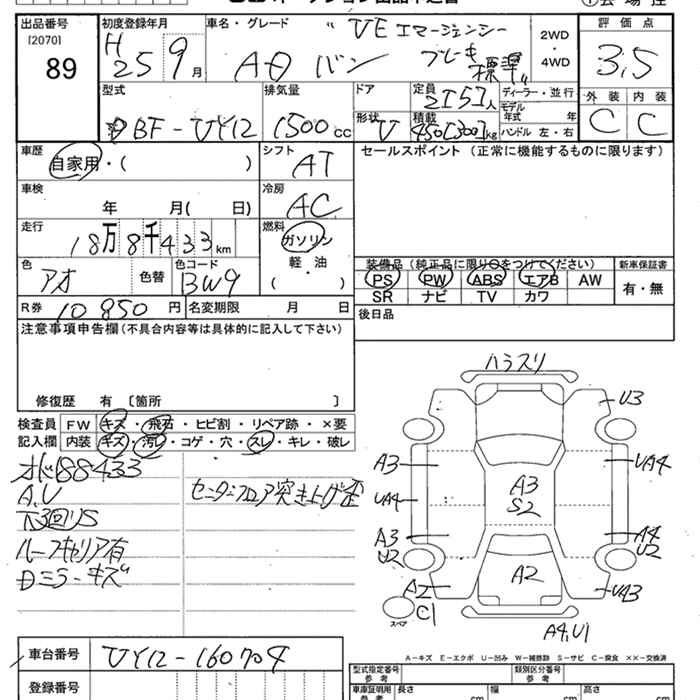 出品番号 初度登録年月 車名・グレード "VE エマージェンシー 評価点
[2070] H 25 9月 AD バン ブレーキ 2WD・4WD 3,5
89 標準"
型式 排気量 ドア 定員 2[5]人 ディーラー・並行 外装 内装
DBF-VY12 1500cc 形状 V 積載 450[300]kg モデル年式 年 C C
ハンドル 左・右
車歴 自家用・( ) シフト AT セールスポイント (正常に機能するものに限ります)
車検 年 月( 日) 冷房 AC
走行 18万8千433km 燃料 ガソリン
軽・油
( )
色 アオ 色替 色コード BW9
装備品(純正品に限り○をつけてください) 新車保証書
PS PW ABS エアB AW 有・無
SR ナビ TV カワ
R券 10850円 名変期限 月 日 後日品
注意事項申告欄(不具合内容等は具体的に記入して下さい)
修復歴 有 [箇所 ]
検査員 FW キズ・飛石・ヒビ割・リペア跡・×要
記入欄 内装 キズ・汚レ・コゲ・穴・スレ・キレ・破レ
オド188433
A,U
下回りS
ルーフキャリア有
Dミラーキズ
センターフロア突き上げ歪
ハラスリ
U3
A3 UA4
UA4 A3
S2
A3 A4
U2 U2
A2 A2 UA3
スペア C1
A4,U1
A-キズ E-エクボ U-凹み W-補修跡 S-サビ C-腐食 XX-交換済
車台番号 VY12-160704
登録番号
型式指定番号 参考 類別区分番号 参考
車庫証明用 参考 長さ cm 幅 cm 高さ cm